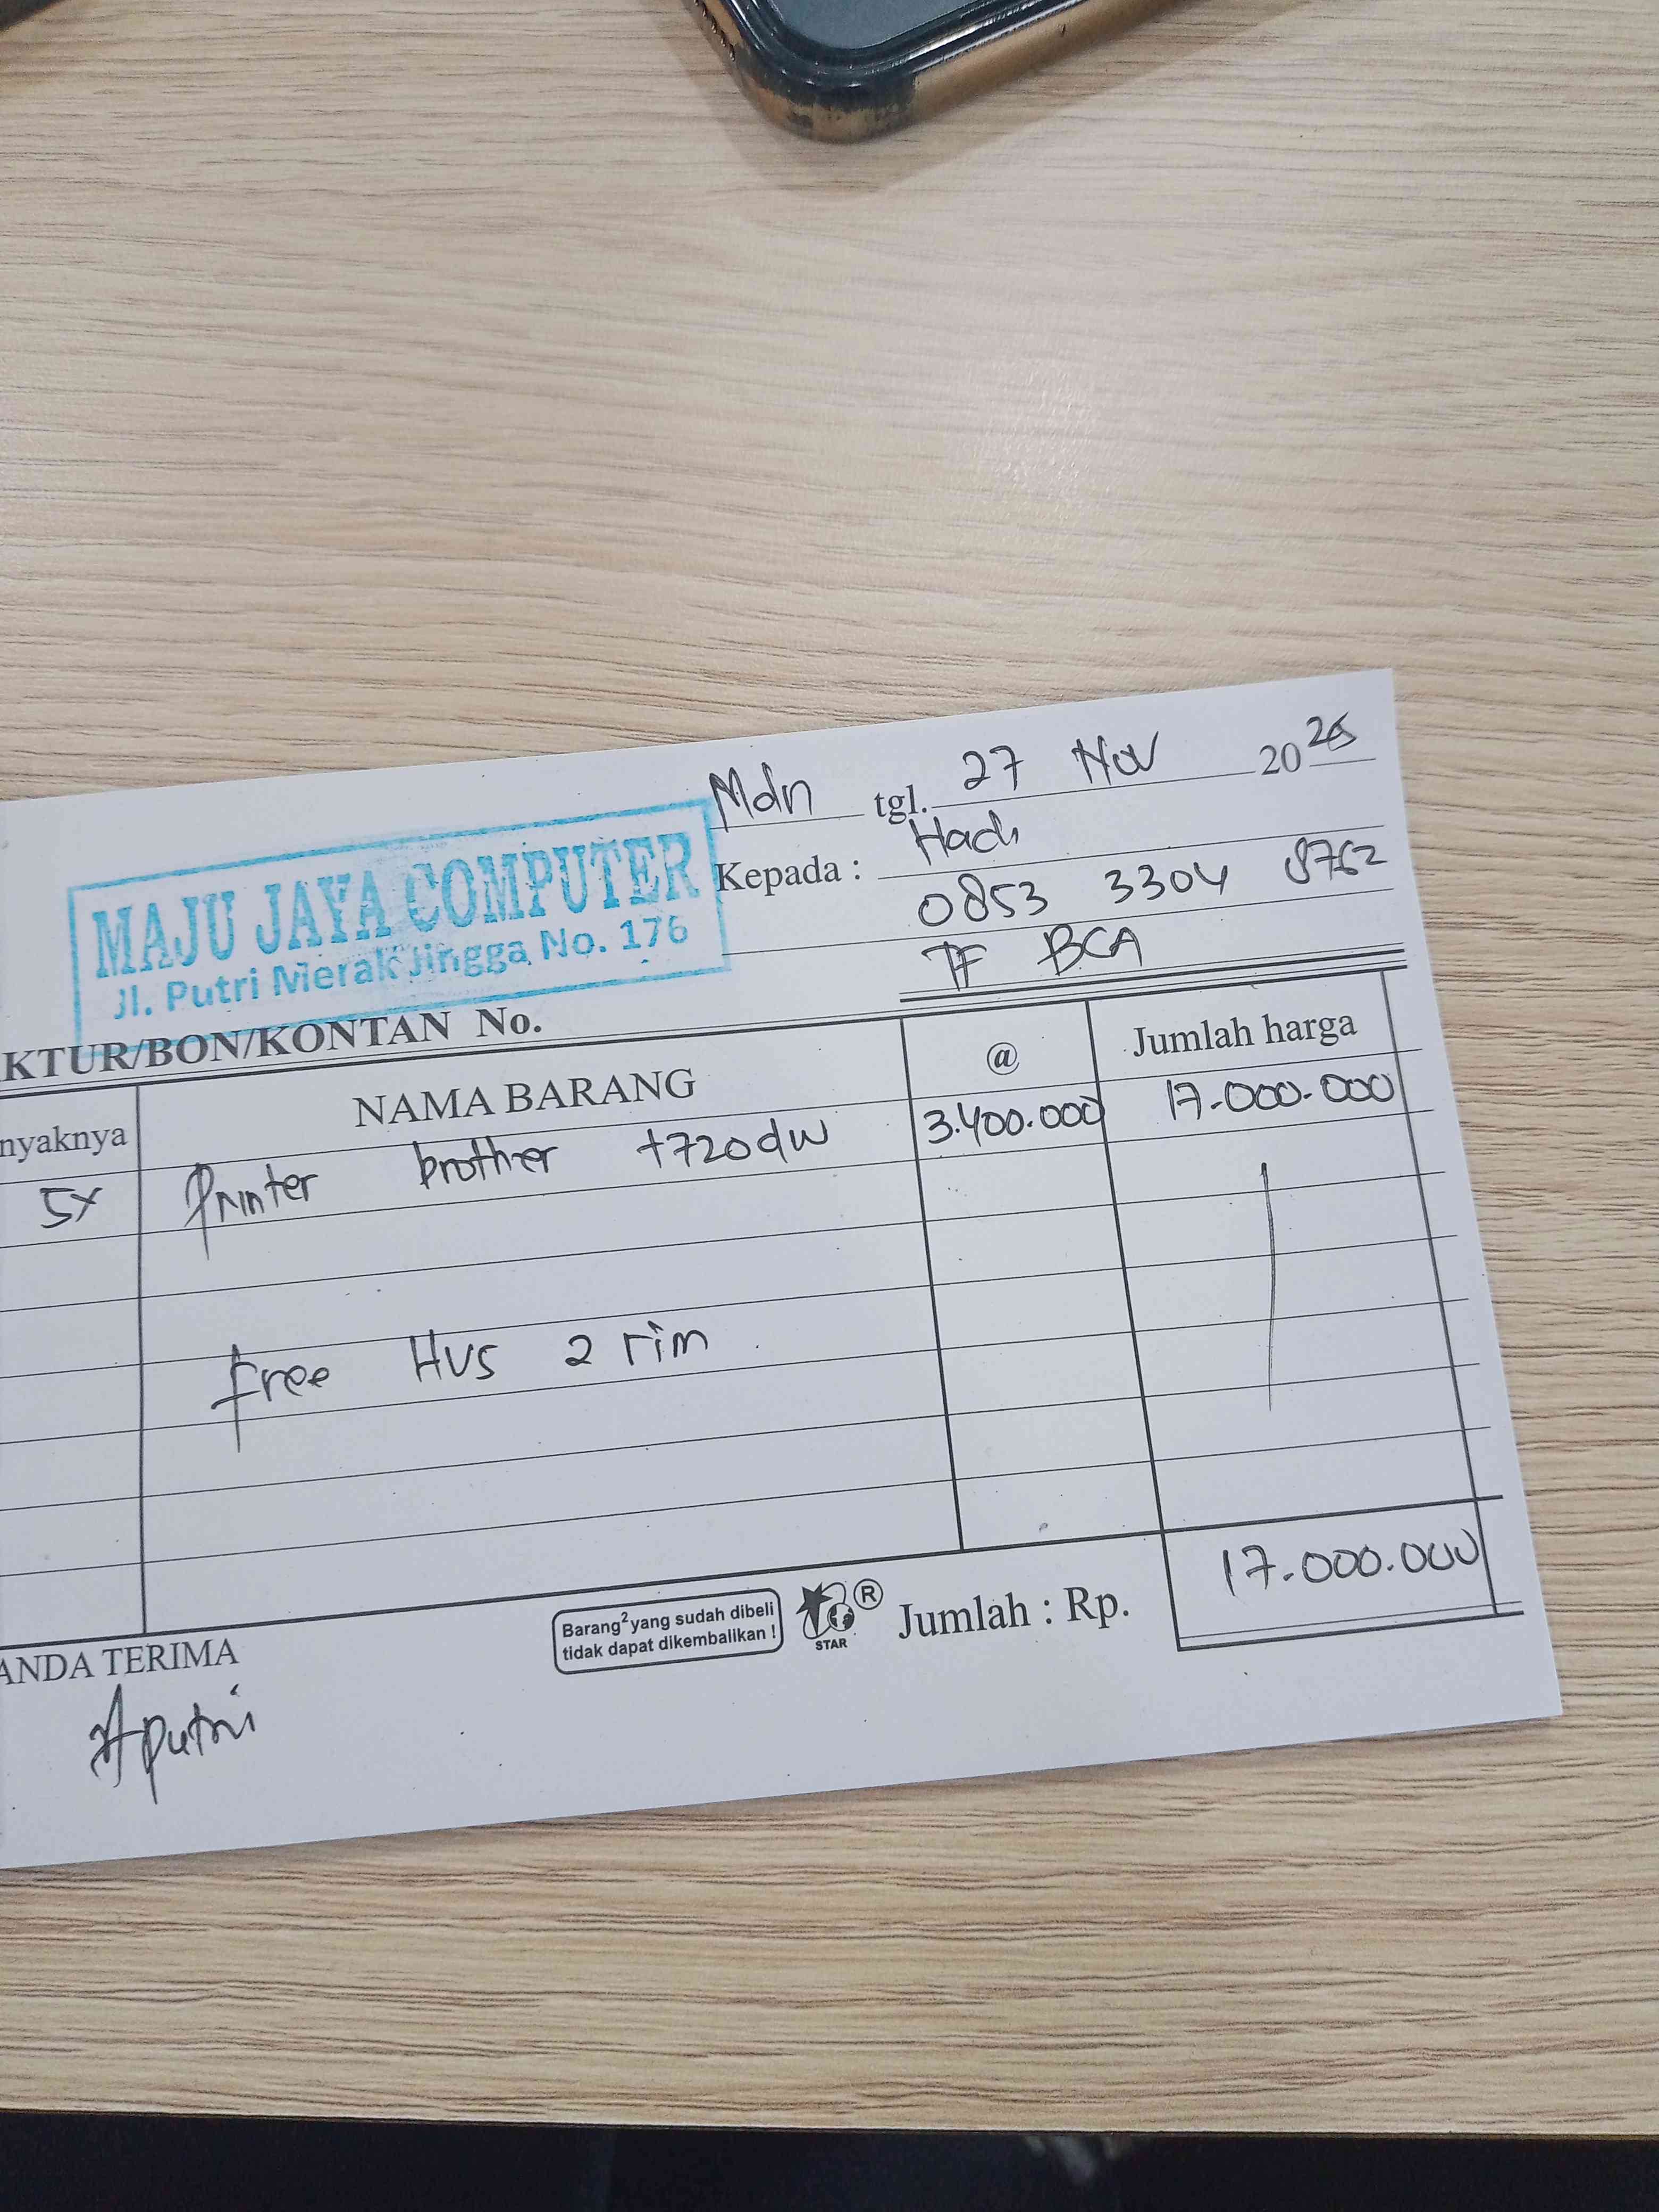 Mdn tgl. 27 Nov 2025
MAJU JAYA COMPUTER
Jl. Putri Merak Jingga No. 176
Kepada : Hadi
0853 3304 8762
TF BCA
KTUR/BON/KONTAN No.
nyaknya NAMA BARANG @ Jumlah harga
5x Printer brother t720dw 3.400.000 17.000.000
free HVS 2 rim
Barang² yang sudah dibeli
tidak dapat dikembalikan !
STAR ®
Jumlah : Rp. 17.000.000
ANDA TERIMA
Aputri